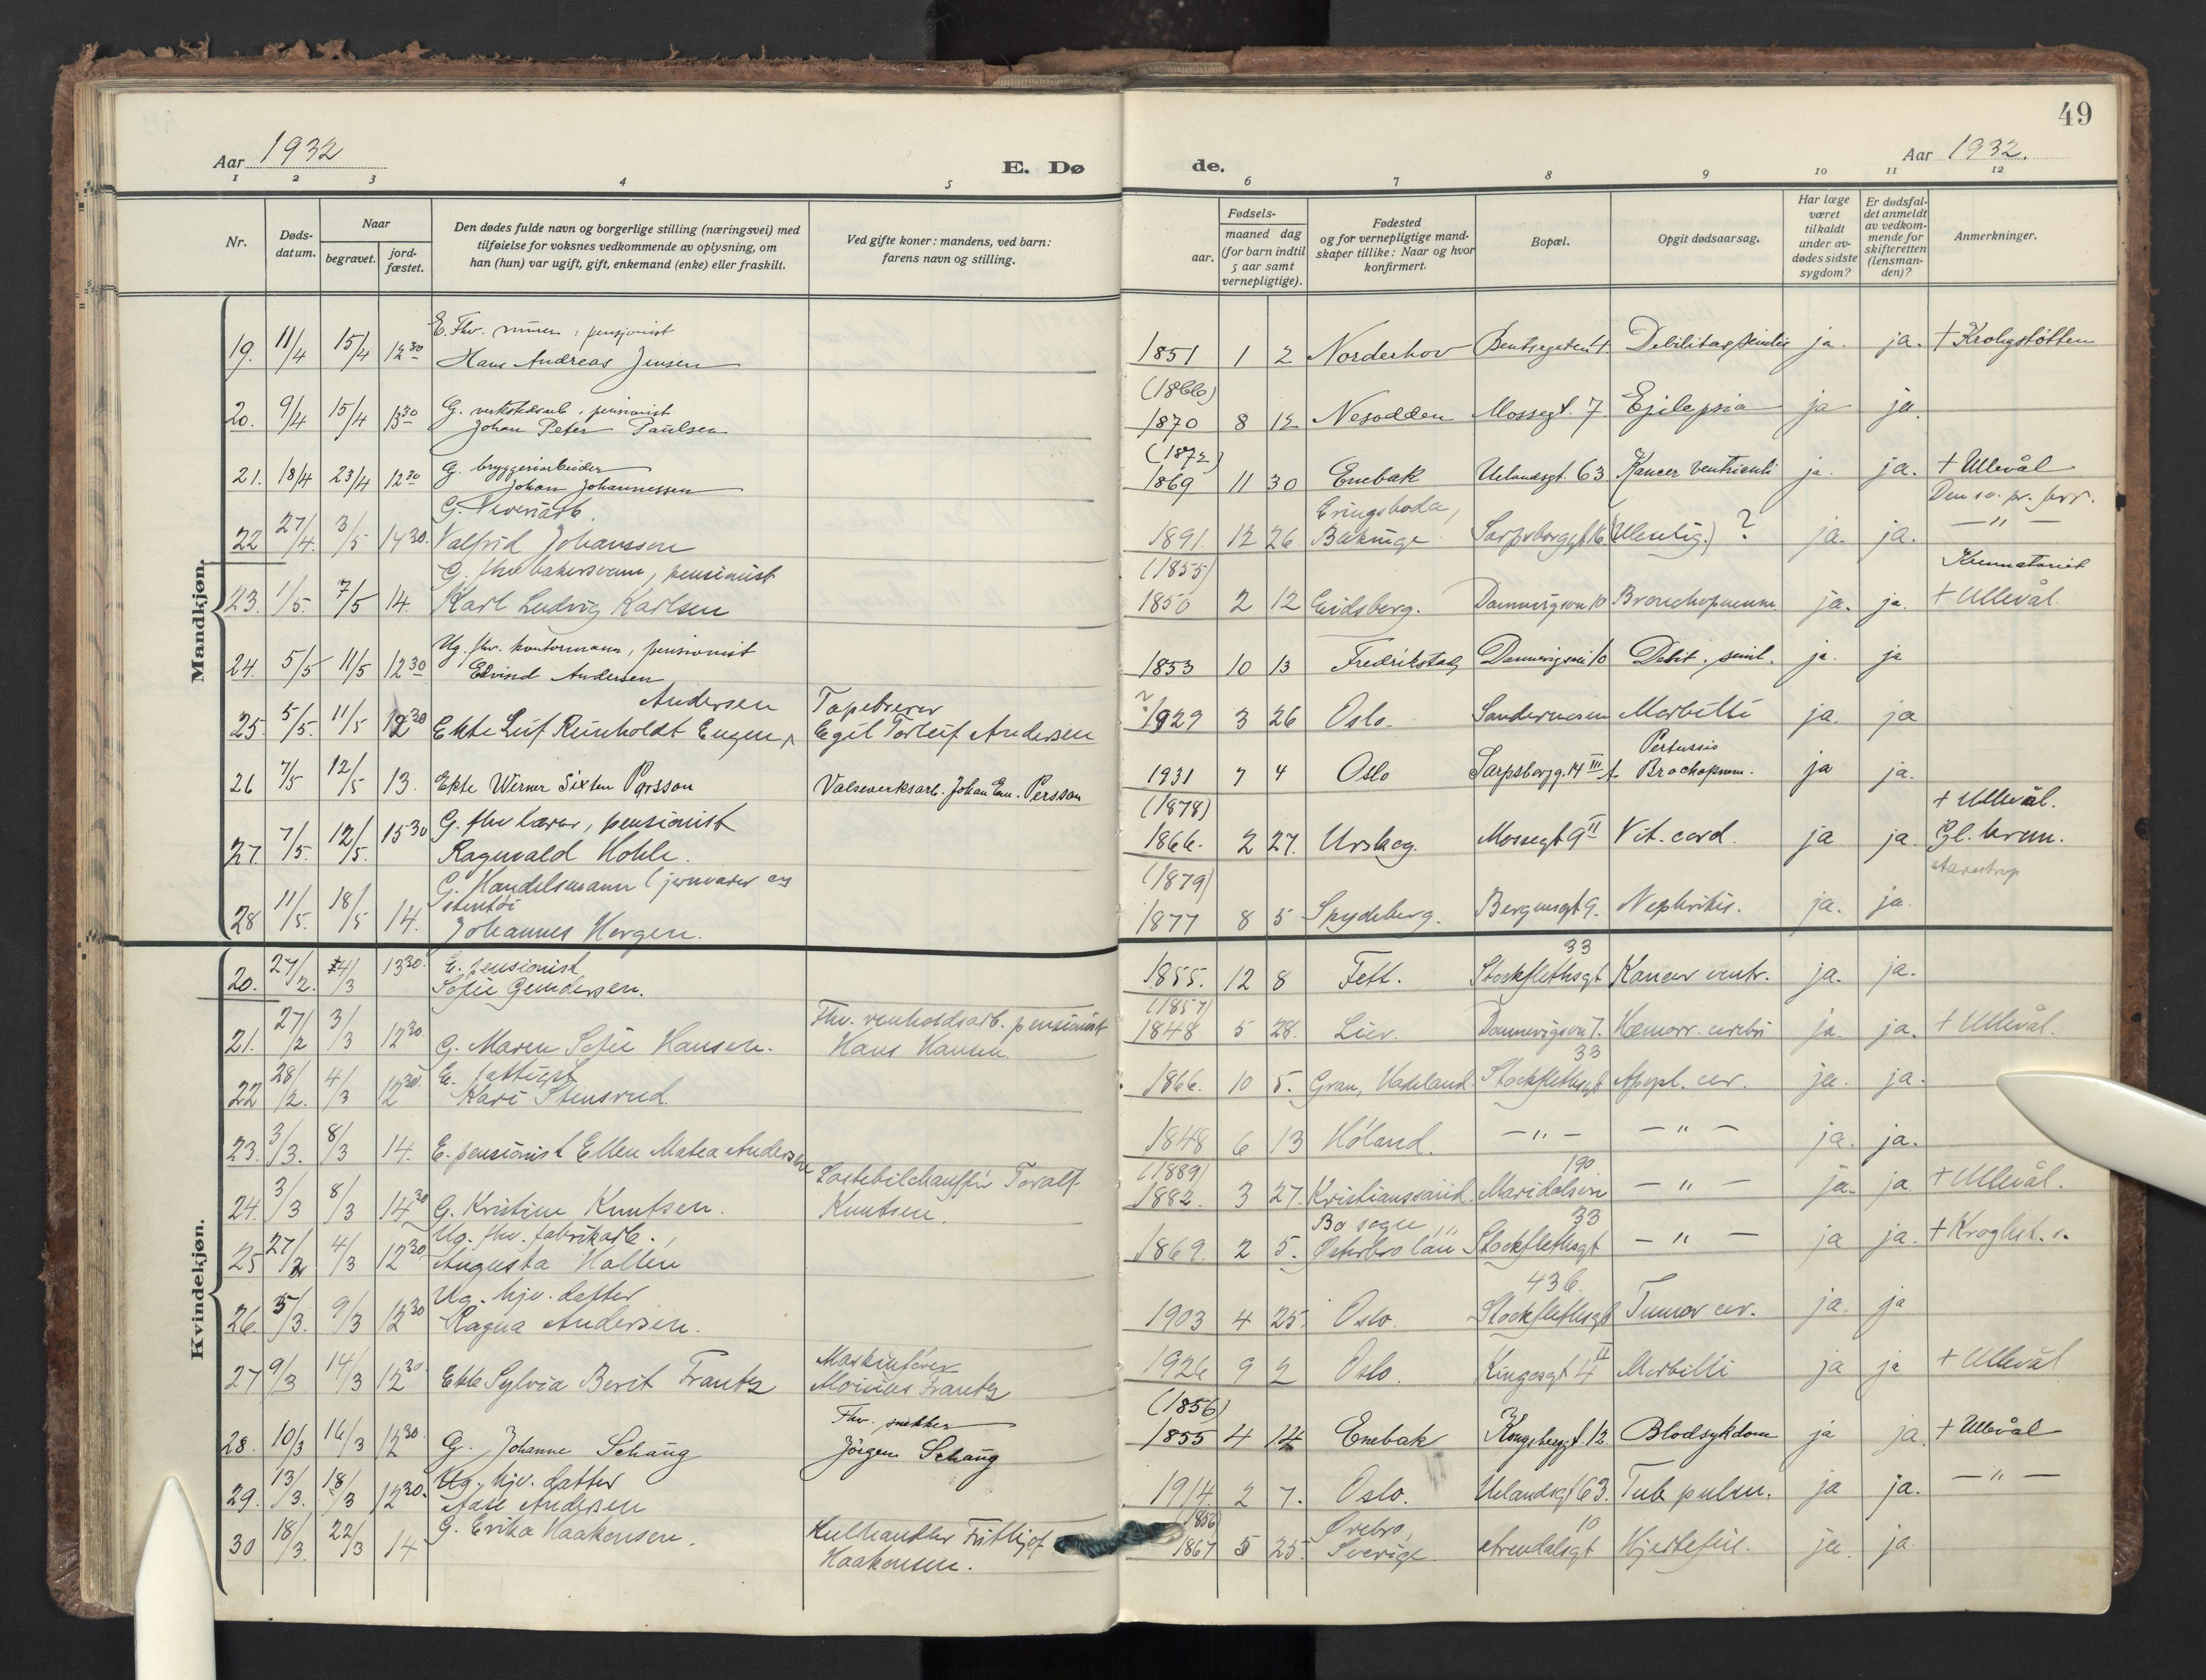 49
Aar 1932
E. Dø
de.
Aar 1932.
1 2 3 4 5 6 7 8 9 10 11 12
Nr.
Døds-
datum.
Naar
begravet.
jord-
fæstet.
Den dødes fulde navn og borgerlige stilling (næringsvei) med
tilføielse for voksnes vedkommende av oplysning, om
han (hun) var ugift, gift, enkemand (enke) eller fraskilt.
Ved gifte koner: mandens, ved barn:
farens navn og stilling.
Fødsels-
aar.
maaned dag
(for barn indtil
5 aar samt
vernepligtige).
Fødested
og for vernepligtige mand-
skaper tillike: Naar og hvor
konfirmert.
Bopæl.
Opgit dødsaarsag.
Har læge
været
tilkaldt
under av-
dødes sidste
sygdom?
Er dødsfal-
det anmeldt
av vedkom-
mende for
skifteretten
(lensman-
den)?
Anmerkninger.
Mandkjøn.
E. Fhv. murer, pensjonist
19. 11/4 15/4 12 30 Hans Andreas Jensen 1851 1 2 Norderhov Bentsegaten Debilitas senilis ja ja. + Krohgstøtten
(1866)
G. verkstedsarb., pensionist
20. 9/4 15/4 13 30 Johan Peter Paulsen 1870 8 12 Nesodden Mossegt. 7 Epilepsia ja ja.
(1872)
G. bryggeriarbeider
21. 18/4 23/4 12 30 Johan Johannessen 1869 11 30 Enebak Uelandsgt. 63 Kancer ventriculi ja. ja. + Ullevål
Eringsboda,
22 27/4. 3/5 14 30. Valfrid Johansson 1891. 12 26. Blekinge Sarpsborggt 16 (Ulentlig.) ? ja. ja. — " —
(1855)
Krematoriet
G. fhv bakersvenn, pensionist
23. 1/5. 7/5 14. Karl Ludvig Karlsen 1850 2 12 Eidsberg. Dannevigsvn 10 Bronchopneum. ja. ja. + Ullevål.
Ug. fhv. kontormann, pensionist
24. 5/5 11/5 12 30 Edvind Andersen 1853 10 13 Fredrikstad Dannevigsvei 10 Debil. senil. ja. ja
Andersen Tapetserer
25. 5/5. 11/5 12 30 Ekte Leif Reinholdt Eugen Egil Torleif Andersen 1929 3 26 Oslo. Sandermosen Morbilli ja. ja
Pertussis
26 7/5 12/5 13. Ekte Werner Sixten Persson Valseverksarb. Johan Em. Persson 1931 7 4 Oslo Sarpsborgg. 14 III Brochopnom. ja ja.
(1878)
+ Ullevål.
G. fhv lærer, pensionist
27. 7/5. 12/5. 15 30 Ragnvald Hohle. 1866. 2 27. Urskog. Mossegt 9 II Vit. cord. ja ja. Gl. krem.
(1879)
Aarestrup
G. Handelsmann (jernvarer og
stentøi
28 11/5. 18/5 14. Johannes Horgen. 1877 8 5 Spydeberg. Bergensgt 9. Nephritis. ja. ja.
Kvindekjøn.
33
E. pensionist
20. 27/2. 4/3 13 30. Sofie Gundersen. 1855. 12 8 Fett. Stockflethsgt Kancer ventr. ja. ja.
(1857)
Fhv. renholdsarb. pensionist
21. 27/2 3/3 12 30. G. Maren Sofie Hansen. Hans Hansen. 1848 5 28. Lier. Dannevigsvn 7. Hæmorr. cerebri ja ja. + Ullevål.
33
22 28/2. 4/3 12 30. Kari Stensrud. 1866. 10 5. Gran, Hadeland. Stockflethsgt Apopl. cer. ja. ja.
23. 3/3. 8/3 14. E. pensionist Ellen Matea Andersen 1848 6 13 Høland. — " — — " — ja. ja.
(1889)
190.
Lastebilchauffør Toralf
24. 3/3 8/3 14 30 G. Kristine Knutsen. Knutsen. 1882. 3 27. Kristianssand. Maridalsvn — " — ja. ja + Ullevål.
33
Ug. fhv. fabrikarb.
Bo sogn
25 27/2 4/3 12 30. Augusta Hallén 1869. 2 5. Stockflethsgt — " — ja ja. + Kroghst.
43b.
Ug. hjv. datter
26. 5/3. 9/3 12 30 Ragna Andersen. 1903 4 25. Oslo. Stockflethsgt Tumor cer. ja. ja
Maskinfører
27 9/3 14/3 12 30 Ekte Sylvia Berit Frantz Frantz 1926 9 2 Oslo. Kingosgt 4 II Morbilli ja ja + Ullevål
(1856)
Fhv. snekker
28. 10/3 16/3 12 30. G. Johanne Schaug Jørgen Schaug 1855 4 14 Enebak Kongsberggt. 12 Blodsykdom ja ja. + Ullevål
Ug. hjv. datter
29. 13/3. 18/3 12 30. Aase Andersen 1914. 2 7. Oslo. Uelandsgt 63. Tub pulm. ja ja. — " —
(1856)
Ørebro,
10
30 18/3. 22/3 14 G. Erika Haakensen. Kulhandler Frithjof 1867 5 25. Sverige. Arendalsgt Hjertefeil. ja. ja.
Haakensen.